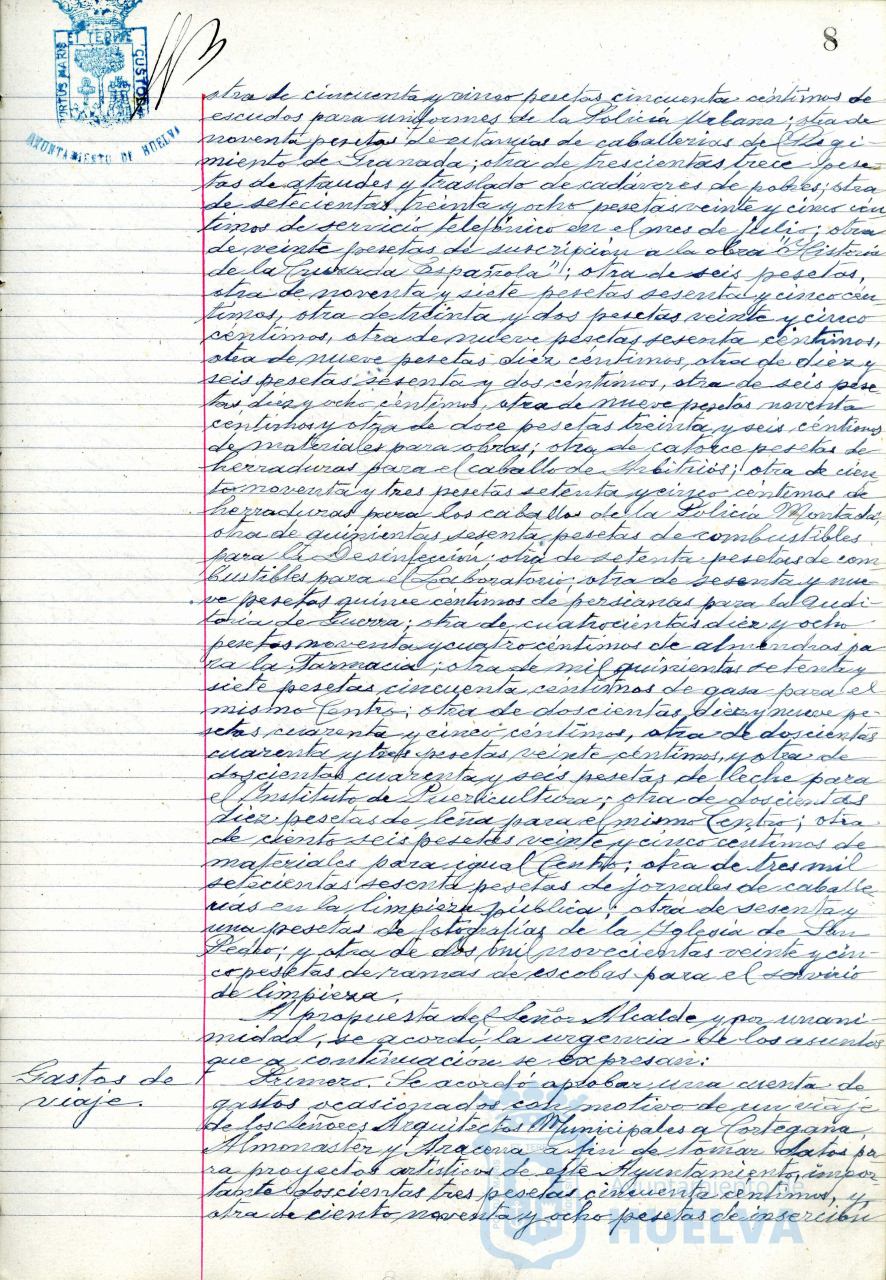 8
PORTUS MARIS ET TERRE CUSTODIA
AYUNTAMIENTO DE HUELVA
otra de cincuenta y cinco pesetas cincuenta céntimos de
escudos para uniformes de la Policía Urbana; otra de
noventa pesetas de estancias de caballerías de Regi-
miento de Granada; otra de trescientas trece pese-
tas de ataudes y traslado de cadáveres de pobres; otra
de setecientas treinta y ocho pesetas veinte y cinco cén-
timos de servicio telefónico en el mes de julio; otra
de veinte pesetas de suscripción a la obra "Historia
de la Cruzada Española"; otra de seis pesetas,
otra de noventa y siete pesetas sesenta y cinco cén-
timos, otra de treinta y dos pesetas veinte y cinco
céntimos, otra de nueve pesetas sesenta céntimos,
otra de nueve pesetas diez céntimos, otra de diez y
seis pesetas sesenta y dos céntimos, otra de seis pese-
tas diez y ocho céntimos, otra de nueve pesetas noventa
centimos y otra de doce pesetas treinta y seis céntimos
de materiales para obras; otra de catorce pesetas de
herraduras para el caballo de Arbitrios; otra de cien-
to noventa y tres pesetas setenta y cinco céntimos de
herraduras para los caballos de la Policía Montada;
otra de quinientas sesenta pesetas de combustibles
para la Desinfección; otra de setenta pesetas de com-
bustibles para el Laboratorio; otra de sesenta y nue-
ve pesetas quince céntimos de persianas para la Audi-
toria de Guerra; otra de cuatrocientas diez y ocho
pesetas noventa y cuatro céntimos de almendras pa-
ra la Farmacia; otra de mil quinientas setenta y
siete pesetas cincuenta céntimos de gasa para el
mismo Centro; otra de doscientas diez y nueve pe-
setas cuarenta y cinco céntimos, otra de doscientas
cuarenta y tres pesetas veinte céntimos, y otra de
doscientas cuarenta y seis pesetas de leche para
el Instituto de Puericultura; otra de doscientas
diez pesetas de leña para el mismo Centro; otra
de ciento seis pesetas veinte y cinco centimos de
materiales para igual Centro; otra de tres mil
setecientas sesenta pesetas de jornales de caballe-
rías en la limpieza pública; otra de sesenta y
una pesetas de fotografías de la Iglesia de San
Pedro; y otra de dos mil novecientas veinte y cin-
co pesetas de ramas de escobas para el servicio
de limpieza.
A propuesta del Señor Alcalde y por unani-
midad, se acordó la urgencia de los asuntos
que a continuación se expresan:
Gastos de
viaje.
Primero. Se acordó aprobar una cuenta de
gastos ocasionados con motivo de un viaje
de los Señores Arquitectos Municipales a Cortegana,
Almonaster y Aracena a fin de tomar datos pa-
ra proyectos artísticos de este Ayuntamiento, impor-
tante doscientas tres pesetas cincuenta céntimos, y
otra de ciento noventa y ocho pesetas de inserción
Ayuntamiento de
HUELVA